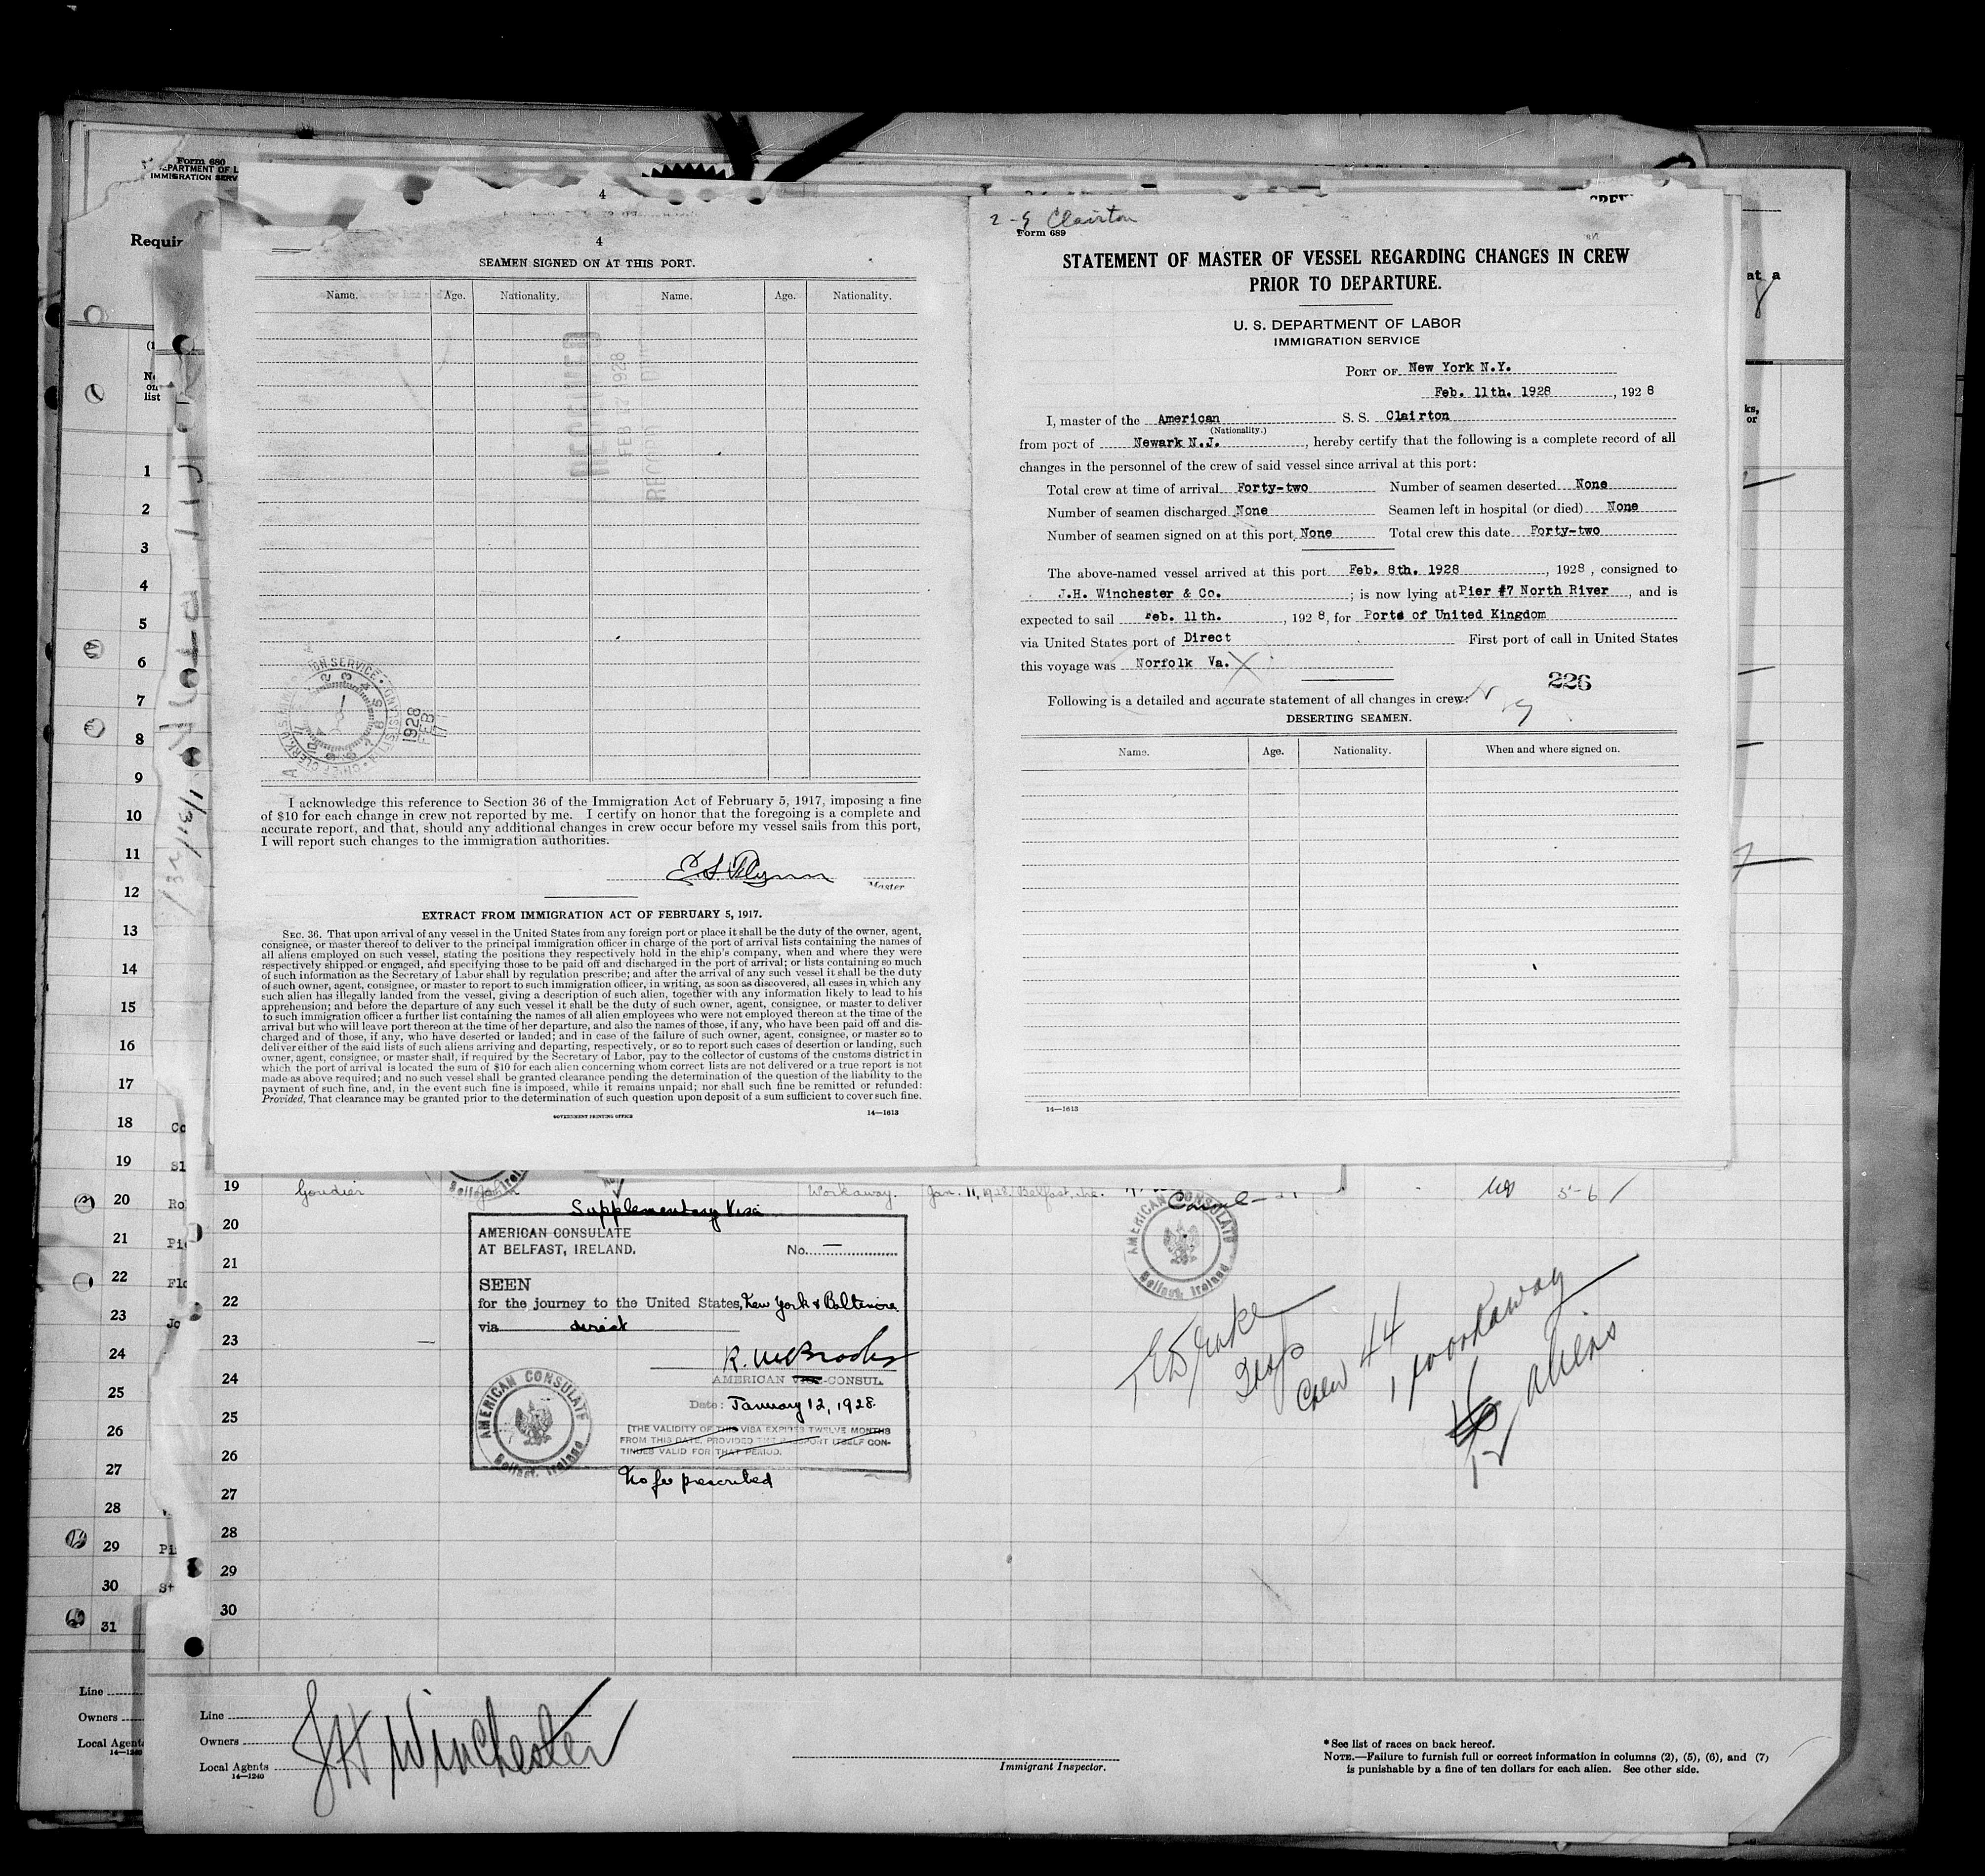 Form 680
DEPARTMENT OF L
IMMIGRATION SERV
Requir
4
4
SEAMEN SIGNED ON AT THIS PORT.
Name. Age. Nationality. Name. Age. Nationality.
FEB 1928
1928
FEB
11
I acknowledge this reference to Section 36 of the Immigration Act of February 5, 1917, imposing a fine
of $10 for each change in crew not reported by me. I certify on honor that the foregoing is a complete and
accurate report, and that, should any additional changes in crew occur before my vessel sails from this port,
I will report such changes to the immigration authorities.
E.S. Flynn
Master
EXTRACT FROM IMMIGRATION ACT OF FEBRUARY 5, 1917.
SEC. 36. That upon arrival of any vessel in the United States from any foreign port or place it shall be the duty of the owner, agent,
consignee, or master thereof to deliver to the principal immigration officer in charge of the port of arrival lists containing the names of
all aliens employed on such vessel, stating the positions they respectively hold in the ship's company, when and where they were
respectively shipped or engaged, and specifying those to be paid off and discharged in the port of arrival; or lists containing so much
of such information as the Secretary of Labor shall by regulation prescribe; and after the arrival of any such vessel it shall be the duty
of such owner, agent, consignee, or master to report to such immigration officer, in writing, as soon as discovered, all cases in which any
such alien has illegally landed from the vessel, giving a description of such alien, together with any information likely to lead to his
apprehension; and before the departure of any such vessel it shall be the duty of such owner, agent, consignee, or master to deliver
to such immigration officer a further list containing the names of all alien employees who were not employed thereon at the time of the
arrival but who will leave port thereon at the time of her departure, and also the names of those, if any, who have been paid off and dis-
charged and of those, if any, who have deserted or landed; and in case of the failure of such owner, agent, consignee, or master so to
deliver either of the said lists of such aliens arriving and departing, respectively, or so to report such cases of desertion or landing, such
owner, agent, consignee, or master shall, if required by the Secretary of Labor, pay to the collector of customs of the customs district in
which the port of arrival is located the sum of $10 for each alien concerning whom correct lists are not delivered or a true report is not
made as above required; and no such vessel shall be granted clearance pending the determination of the question of the liability to the
payment of such fine, and, in the event such fine is imposed, while it remains unpaid; nor shall such fine be remitted or refunded:
Provided, That clearance may be granted prior to the determination of such question upon deposit of a sum sufficient to cover such fine.
GOVERNMENT PRINTING OFFICE 14—1613
2-9 Clairton
Form 689
STATEMENT OF MASTER OF VESSEL REGARDING CHANGES IN CREW
PRIOR TO DEPARTURE.
U. S. DEPARTMENT OF LABOR
IMMIGRATION SERVICE
PORT OF New York N.Y.
Feb. 11th. 1928, 1928
I, master of the American S. S. Clairton
(Nationality.)
from port of Newark N.J., hereby certify that the following is a complete record of all
changes in the personnel of the crew of said vessel since arrival at this port:
Total crew at time of arrival Forty-two Number of seamen deserted None
Number of seamen discharged None Seamen left in hospital (or died) None
Number of seamen signed on at this port None Total crew this date Forty-two
The above-named vessel arrived at this port Feb. 8th. 1928, 1928, consigned to
J.H. Winchester & Co.; is now lying at Pier #7 North River, and is
expected to sail Feb. 11th., 1928, for Ports of United Kingdom
via United States port of Direct First port of call in United States
this voyage was Norfolk Va. X
226
Following is a detailed and accurate statement of all changes in crew:
DESERTING SEAMEN.
Name. Age. Nationality. When and where signed on.
14—1613
1
2
3
4
5
6
7
8
9
10
11
12
13
14
15
16
17
18 Co
19 Sl
20 Ro
21 Pi
22 Flo
23 Jo
24
25
26
27
28
29 Pi
30 St
31
19 Goudier John Workaway. Jan. 11, 1928, Belfast, Ire. 5-6
20
21
22
23
24
25
26
27
28
29
30
Supplementary Visa
AMERICAN CONSULATE
AT BELFAST, IRELAND. No. —
SEEN
for the journey to the United States, New York & Baltimore
via direct
R. McBrooks
AMERICAN VICE-CONSUL
Date: January 12, 1928.
[THE VALIDITY OF THIS VISA EXPIRES TWELVE MONTHS
FROM THIS DATE, PROVIDED THE PASSPORT ITSELF CON-
TINUES VALID FOR THAT PERIOD.
No fee prescribed
AMERICAN CONSULATE
Belfast, Ireland
AMERICAN CONSULATE
Belfast, Ireland
Crew 44
1 workaway
12 aliens
Line
Owners
Local Agents
14—1240
Line
Owners
Local Agents
14—1240
JH Winchester
Immigrant Inspector.
* See list of races on back hereof.
NOTE.—Failure to furnish full or correct information in columns (2), (5), (6), and (7)
is punishable by a fine of ten dollars for each alien. See other side.